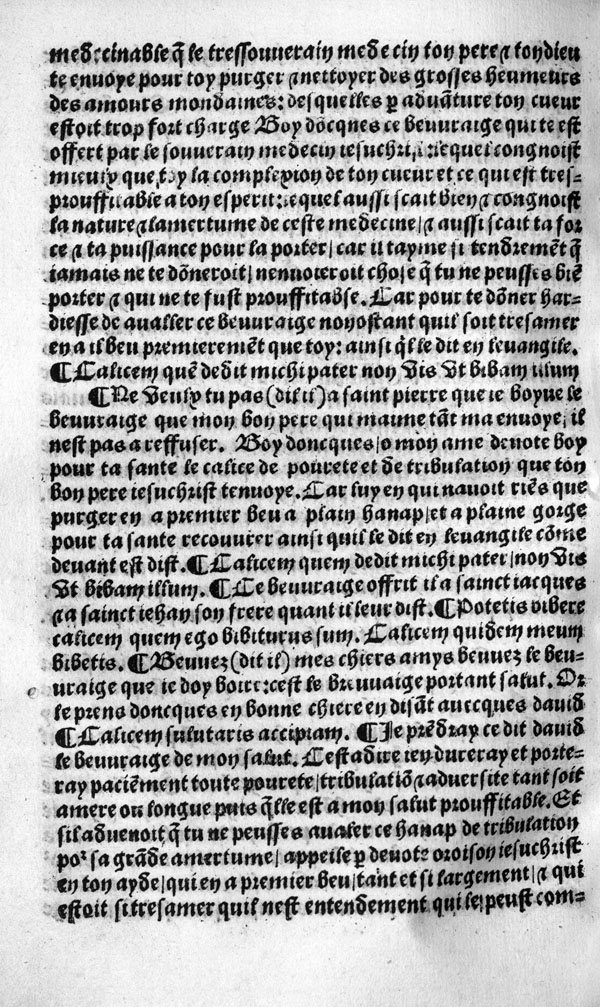 medecinable q̃ le tressouuerain medecin ton pere ⁊ ton dieu
te enuoye pour toy purger ⁊ nettoyer des grosses heumeurs
des amours mondaines: desquelles p aduãture ton cueur
estoit trop fort charge Boy dõcques ce beuuraige qui te est
offert par le souuerain medecin iesuchrist lequel congnoist
mieulx que toy la complexion de ton cueur et ce qui est tres-
prouffitable a ton esperit: lequel aussi scait bien ⁊ congnoist
la nature ⁊ lamertume de ceste medecine/ ⁊ aussi scait ta for
ce ⁊ ta puissance pour la porter/ car il tayme si tendremẽt q̃
iamais ne te dõneroit/ nenuoieroit chose q̃ tu ne peusses biẽ
porter ⁊ qui ne te fust prouffitable. Car pour te dõner har-
diesse de aualler ce beuuraige nonostant quil soit tresamer
en a il beu premieremẽt que toy: ainsi q̃l le dit en leuangile.
¶Calicem quẽ dedit michi pater non vis vt bibam illum
¶Ne veulx tu pas (dit il) a saint pierre que ie boyue le
beuuraige que mon bon pere qui mayme tãt ma enuoye/ il
nest pas a reffuser. Boy doncques/ o mon ame deuote boy
pour ta sante le calice de pourete et de tribulation que ton
bon pere iesuchrist tenuoye. Car luy en qui nauoit riẽs que
purger en a premier beu a plain hanap/ et a plaine gorge
pour ta sante recouurer ainsi quil le dit en leuangile cõme
deuant est dist. ¶Calicem quem dedit michi pater/ non vis
vt bibam illum. ¶Ce beuuraige offrit il a sainct iacques
⁊ a sainct iehan son frere quant il leur dist. ¶Potetis bibere
calicem quem ego bibiturus sum. Calicem quidem meum
bibetis. ¶Beuuez (dit il) mes chiers amys beuuez le beu-
uraige que ie doy boire: cest le breuuaige portant salut. Or
le prens doncques en bonne chiere en disãt auecques dauid
¶Calicem salutaris accipiam. ¶Je prẽdray ce dit dauid
le beuuraige de mon salut. Cestadire ien dureray et porte-
ray paciẽment toute pourete/ tribulatiõ ⁊ aduersite tant soit
amere ou longue puis q̃lle est a mon salut prouffitable. Et
sil aduenoit q̃ tu ne peusses aualer ce hanap de tribulation
poʳ sa grãde amertume/ appelle p deuote oroison iesuchrist
en ton ayde/ qui en a premier beu/ tant et si largement/ ⁊ qui
estoit si tresamer quil nest entendement qui le peust com-